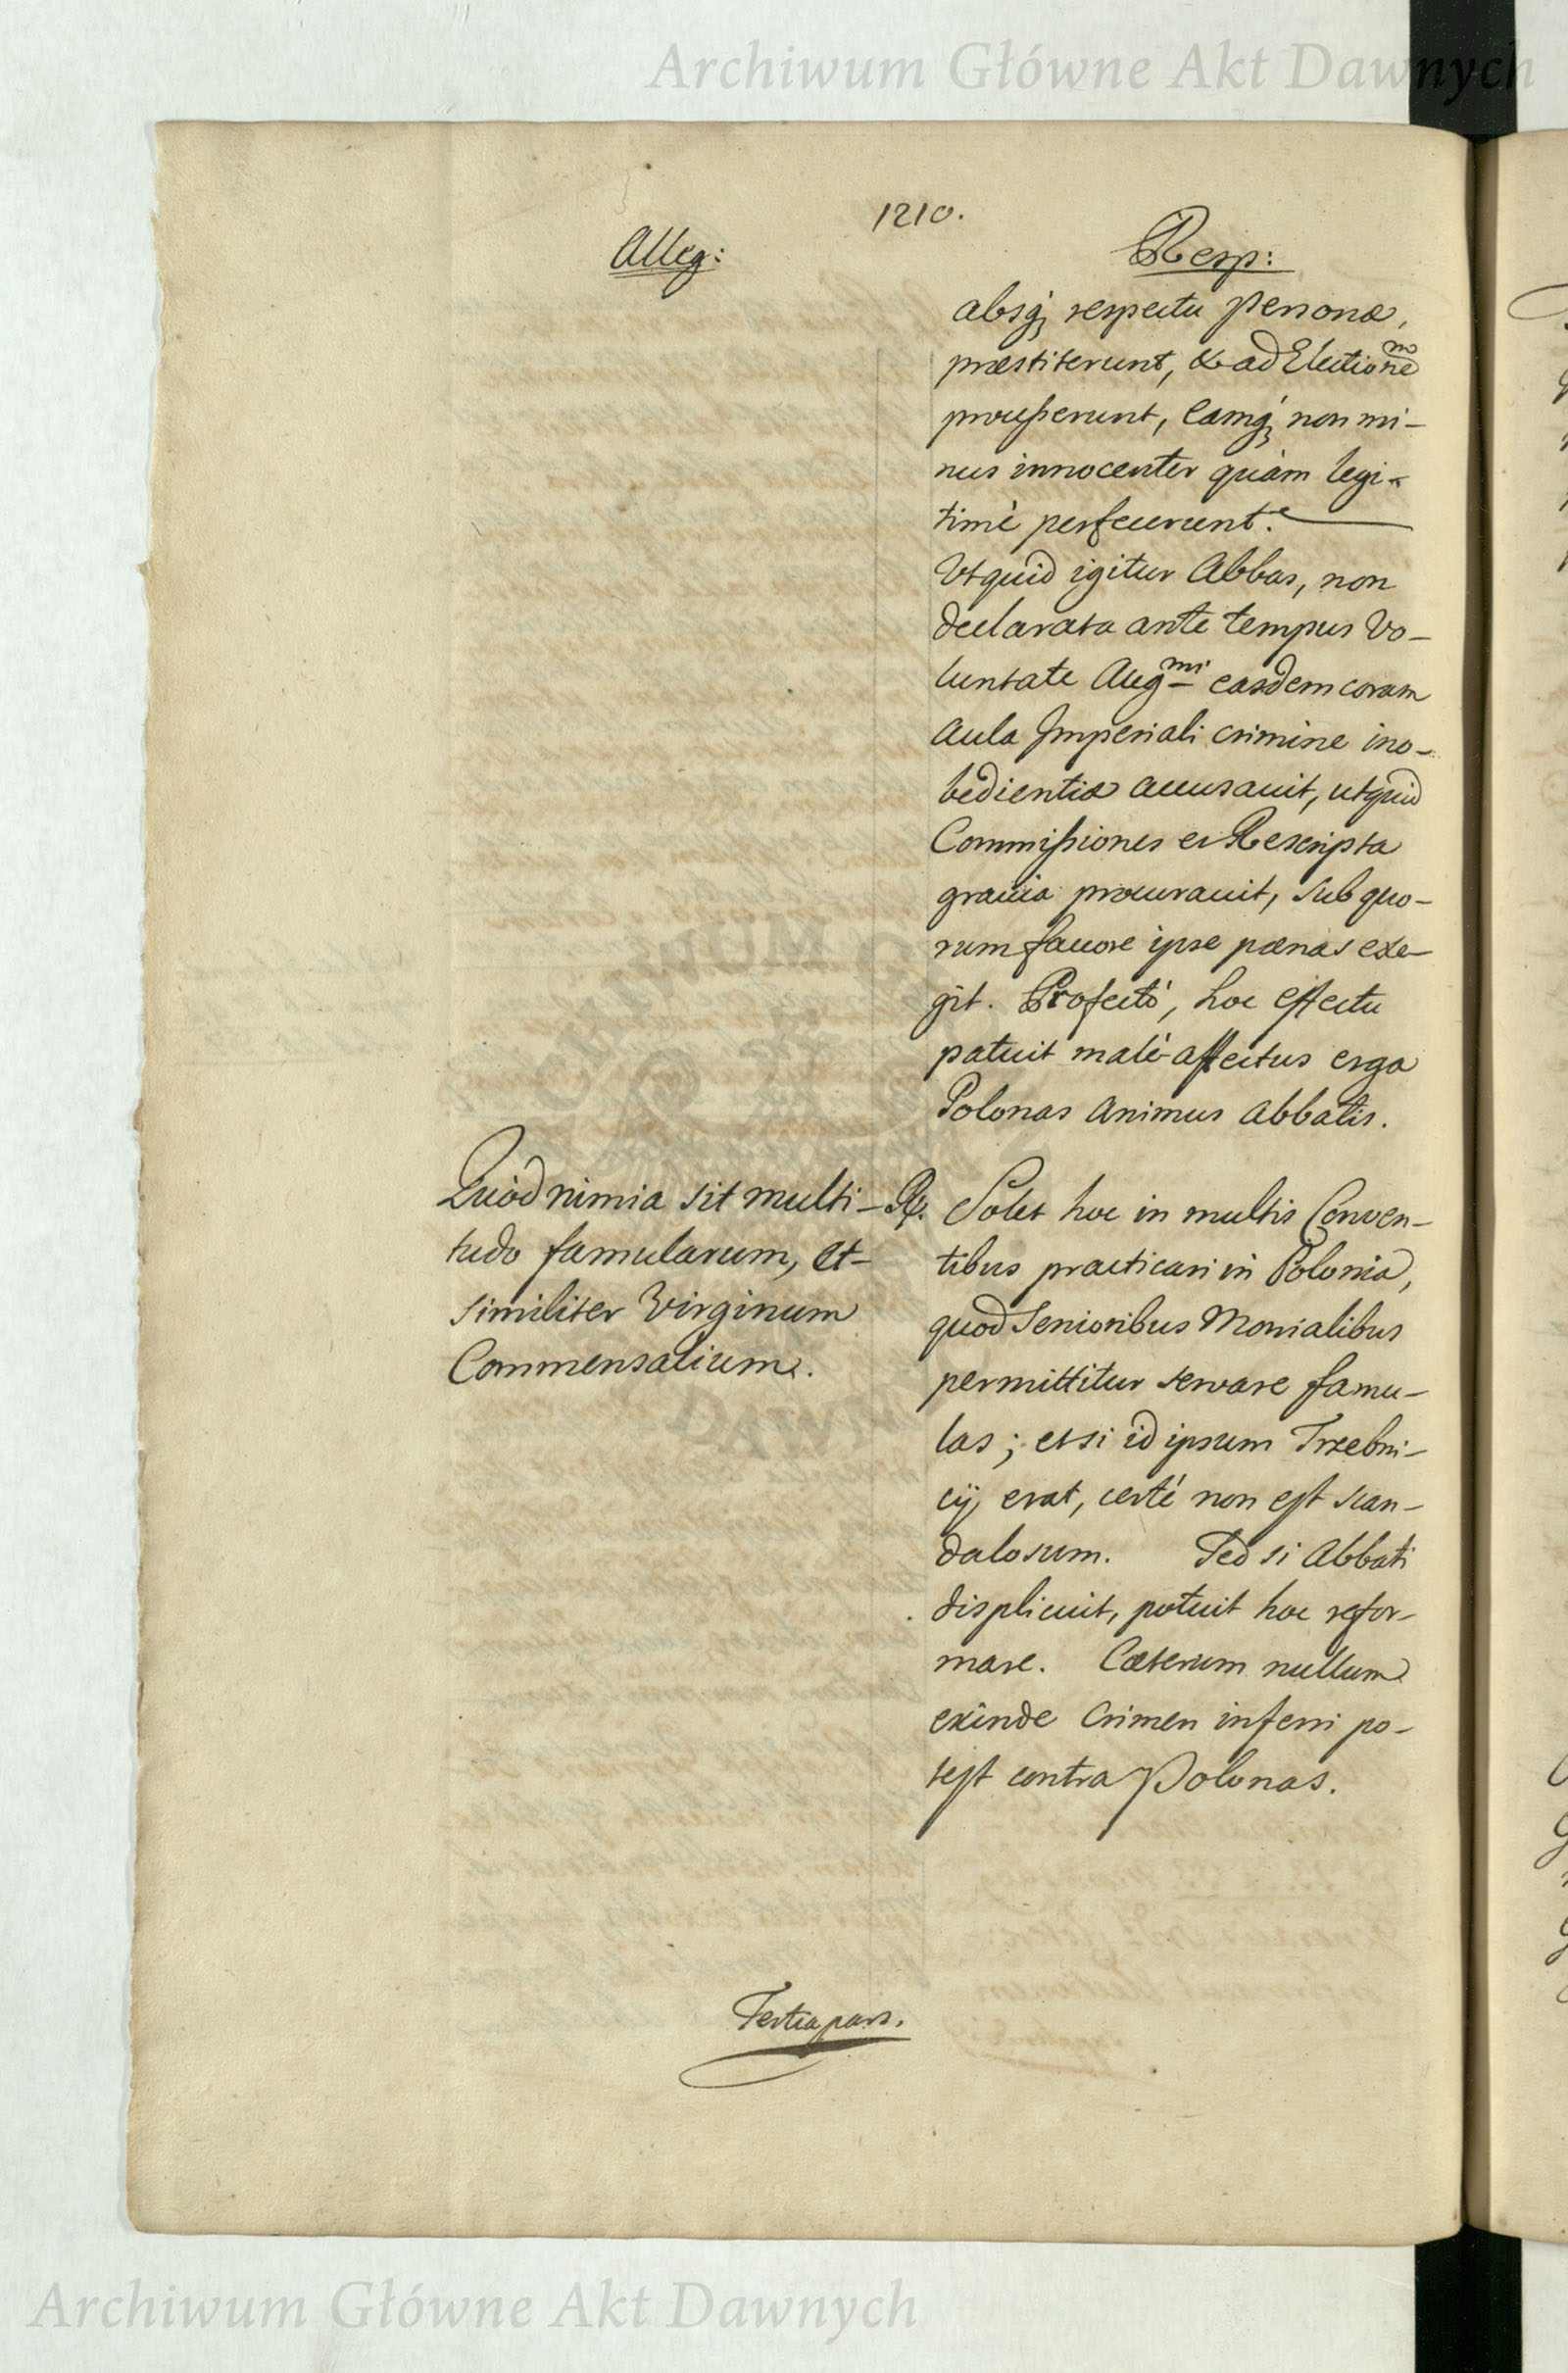 Archiwum Główne Akt Dawnych
1210.
Alleg:
Resp:
absq; respectu personæ,
præstiterunt, & ad Electionē m
processerunt, Eamq; non mi-
nus innocenter quàm legi-
timè perfecerunt.
Utquid igitur Abbas, non
declarata ante tempus Vo-
luntate Augmi easdem coram
Aula Imperiali crimine ino-
bedientiæ accusauit, utquid
Commissiones et Rescripta
grauia procurauit, sub quo-
rum fauore ipse pænas exe-
git. Profectò, hoc effectu
patuit malè affectus erga
Polonas Animus Abbatis.
Quòd nimia sit multi-
tudo famularum, et
similiter Virginum
Commensalium.
R. Solet hoc in multis Conven-
tibus practicari in Polonia,
quod Senioribus Monialibus
permittitur servare famu-
las; et si id ipsum Trzebni-
cij erat, certè non est scan-
dalosum. Sed si Abbati
displicuit, potuit hoc refor-
mare. Cæterum nullum
exinde Crimen inferri po-
test contra Polonas.
Tertia pars.
Archiwum Główne Akt Dawnych